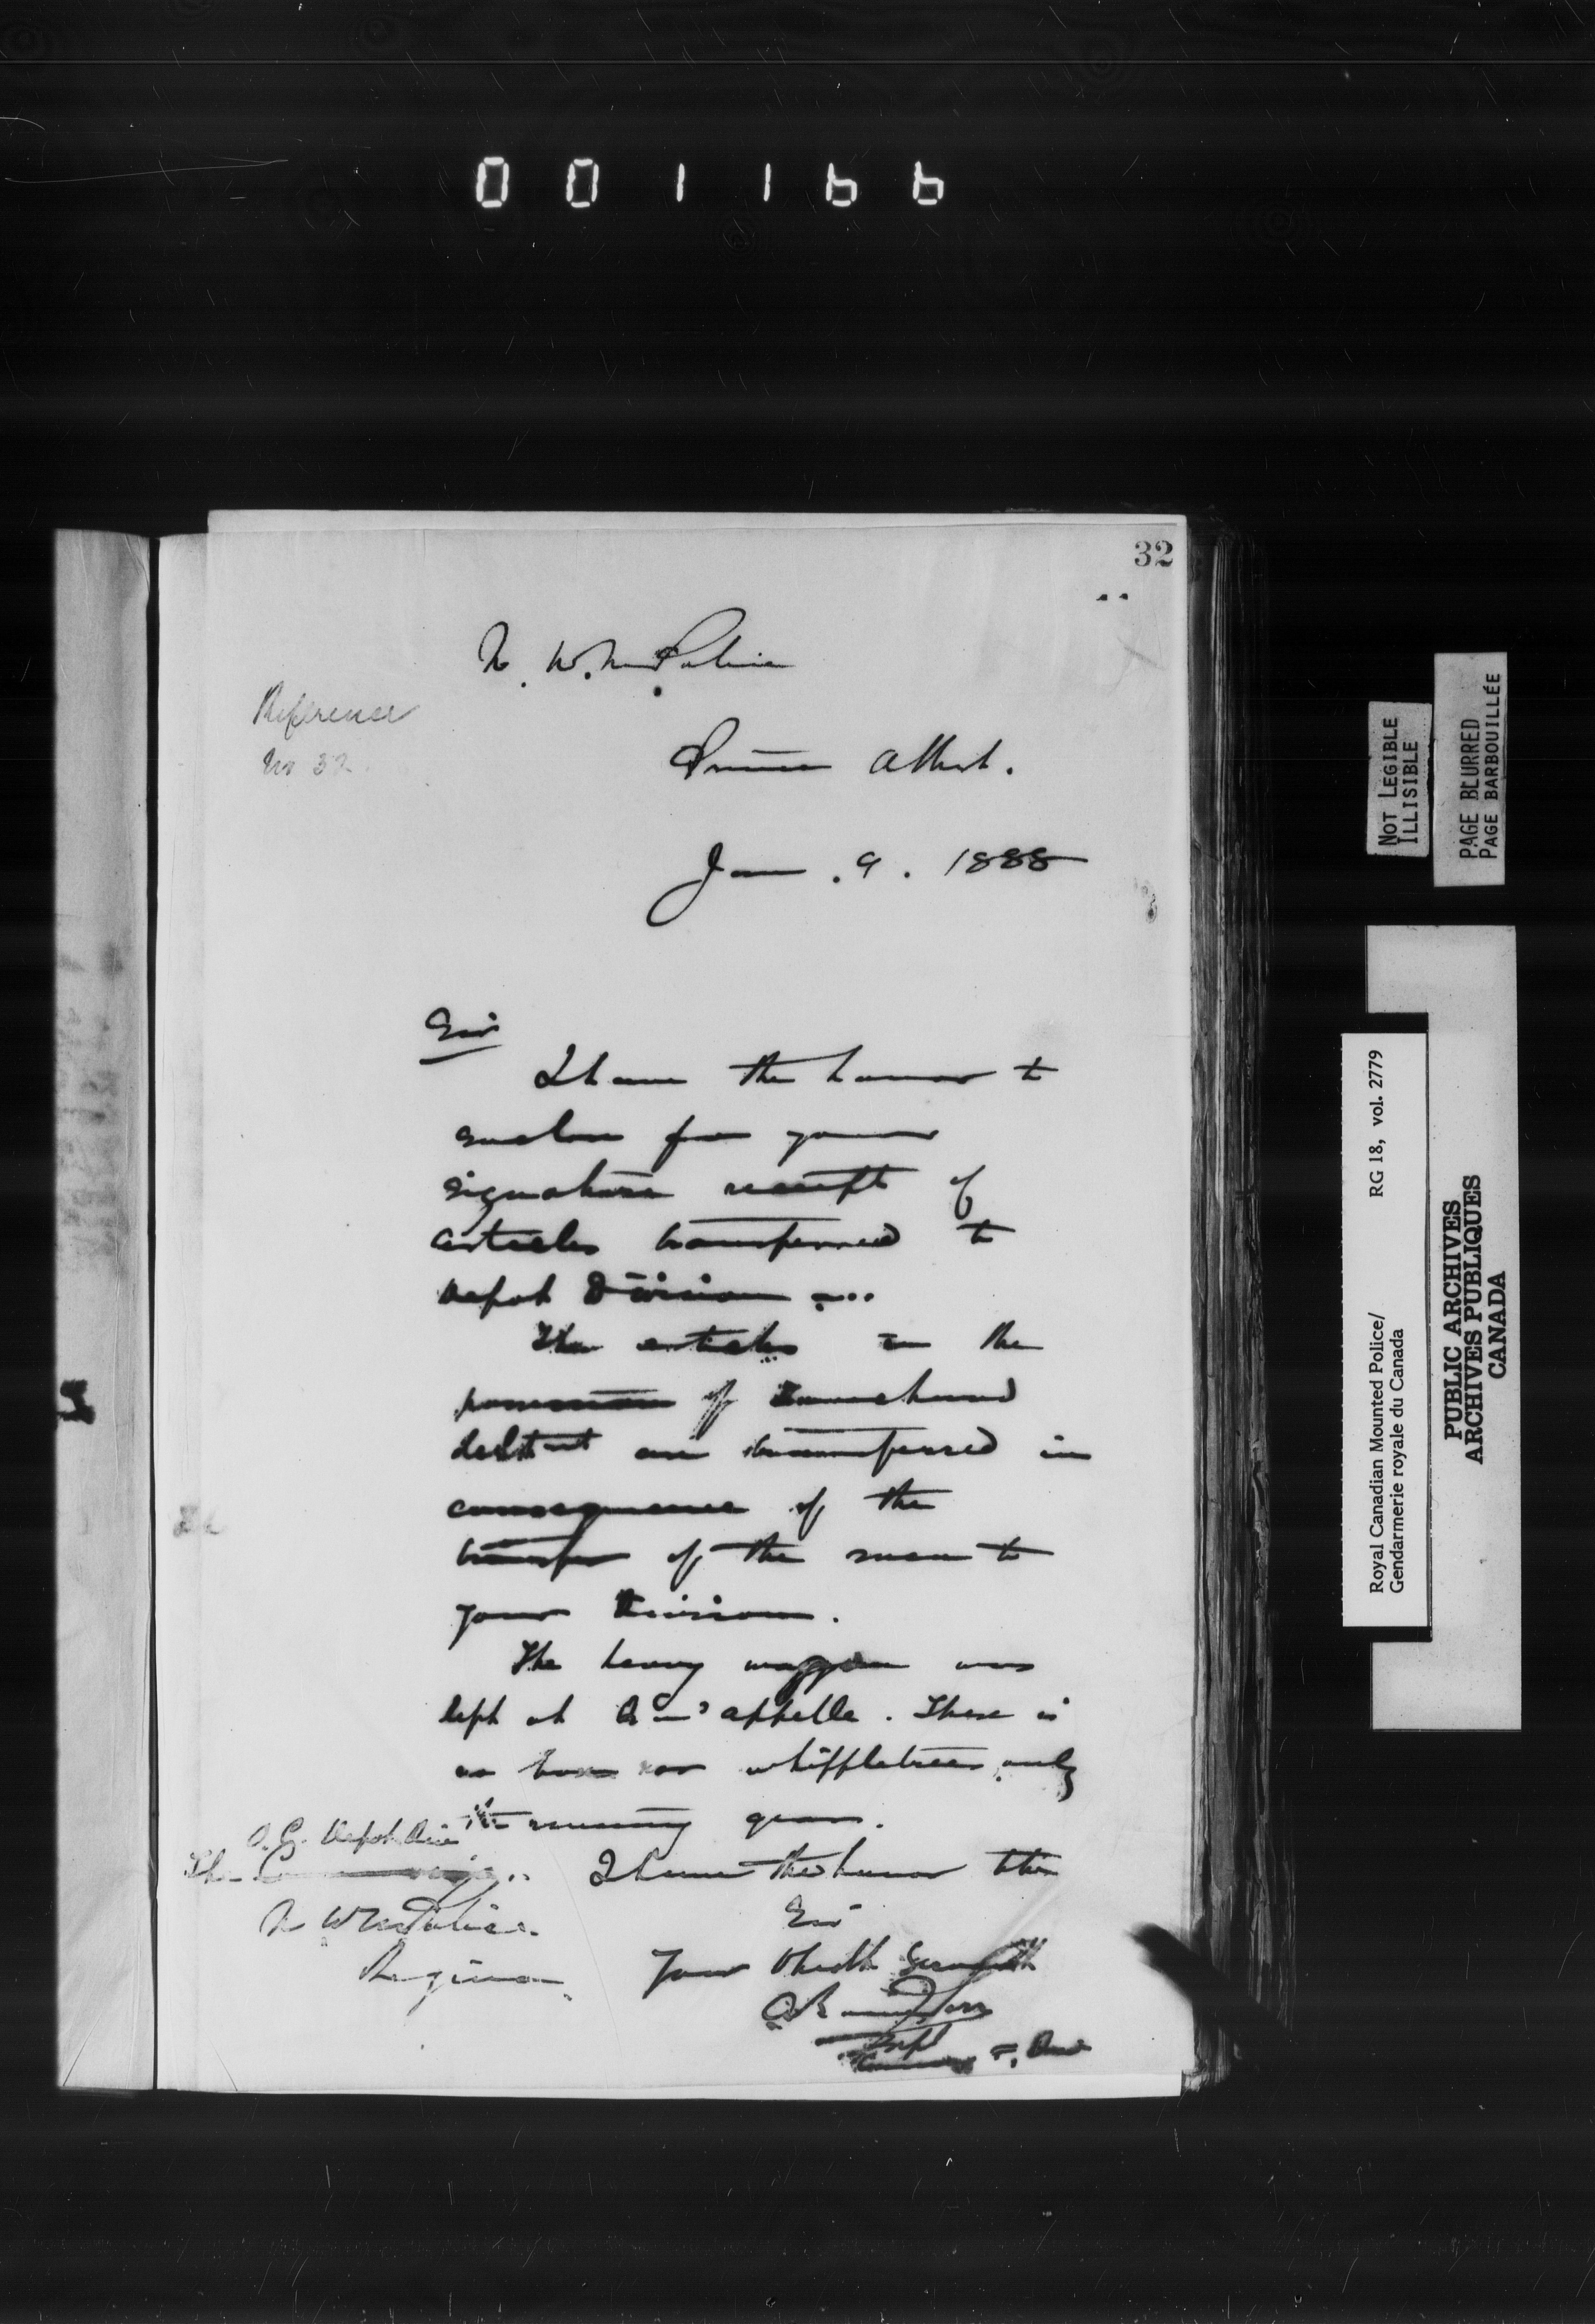 001166
32
N. W. M. Police
Reference
No 32
Prince Albert.
Jan. 9. 1888
Sir
I have the honor to
enclose for your
signature receipt of
articles transferred to
Depot Division
The articles in the
possession of
are transferred in
consequence of the
transfer of the men to
your Division.
The heavy waggon was
left at Qu'appelle. There is
no box nor whiffletrees, only
the running gear.
O. C. Depot Div
The
N W M Police.
Regina
I have the honor to be
Sir
Your Obedt Servant
Supt
Commdg F. Div
NOT LEGIBLE
ILLISIBLE
PAGE BLURRED
PAGE BARBOUILLÉE
Royal Canadian Mounted Police/ RG 18, vol. 2779
Gendarmerie royale du Canada
PUBLIC ARCHIVES
ARCHIVES PUBLIQUES
CANADA